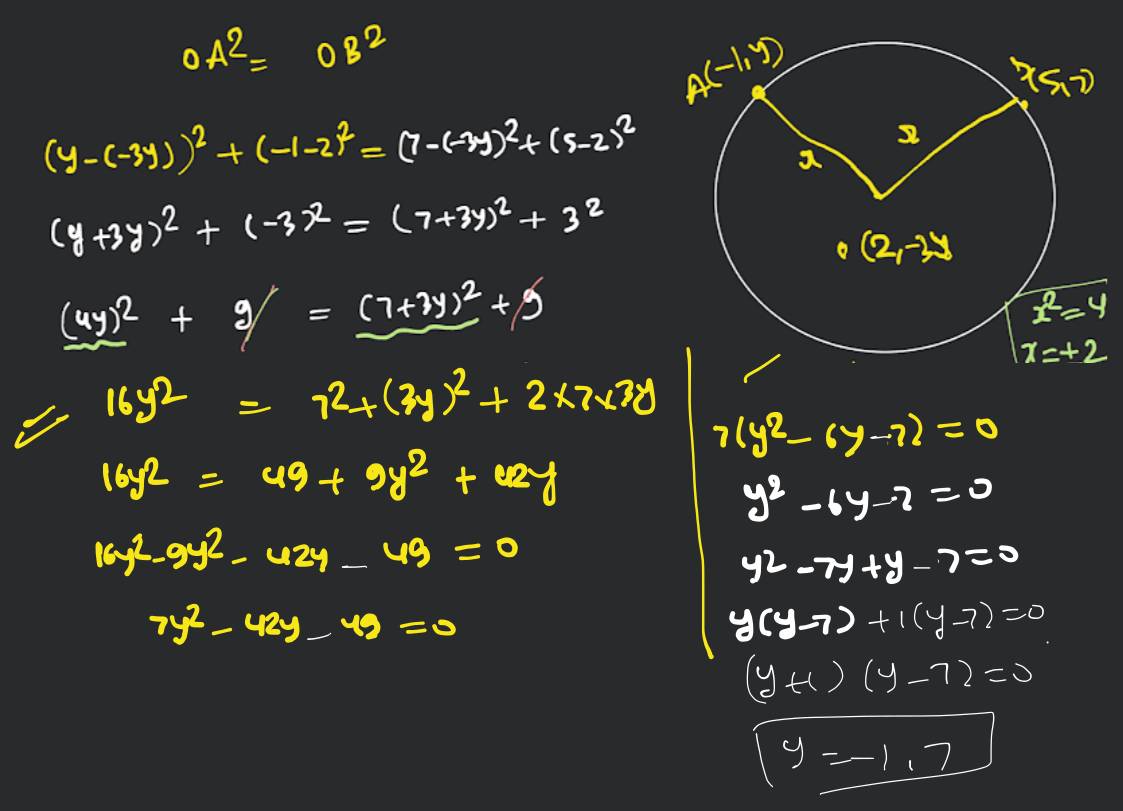 OA² = OB²
(y-(-3y))² + (-1-2)² = (7-(-3y)²+(5-2)²
(y+3y)² + (-3)² = (7+3y)² + 3²
(4y)² + 9 = (7+3y)² + 9
16y² = 7²+(3y)² + 2×7×3y
16y² = 49 + 9y² + 42y
16y²-9y²- 42y - 49 = 0
7y² - 42y - 49 = 0
A(-1,y)
(5,7)
x
x
O (2,-3y
x²=4
x=+2
7(y²-6y-7)=0
y²-6y-7=0
y²-7y+y-7=0
y(y-7)+1(y-7)=0
(y+1)(y-7)=0
y=-1,7